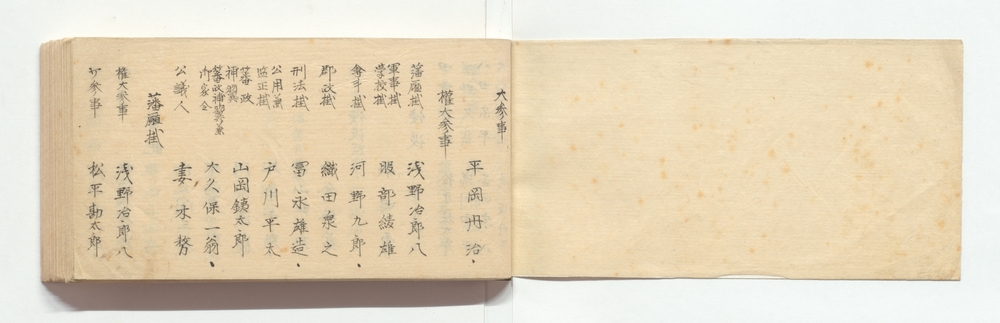 大参事
平岡丹治
権大参事
藩廰掛 浅野冶郎八
軍事掛 学校掛 服部綾雄
会計掛 河野九郎
郡政掛 織田泉之
刑法掛 冨永雄造
公用兼 監正掛 戸川平太
藩政 補翼 山岡鉄太郎
藩政補翼兼 御家令 大久保一翁
公議人 妻木務
藩廰掛
権大参事 浅野冶郎八
少参事 松平勘太郎